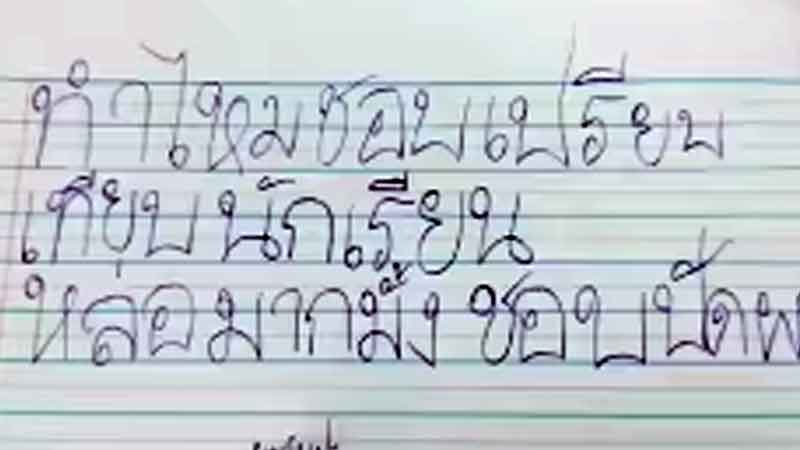 ทำไหมชอบเปรียบ
เทียบนักเรียน
หล่อมากมั้ง ชอบปัด